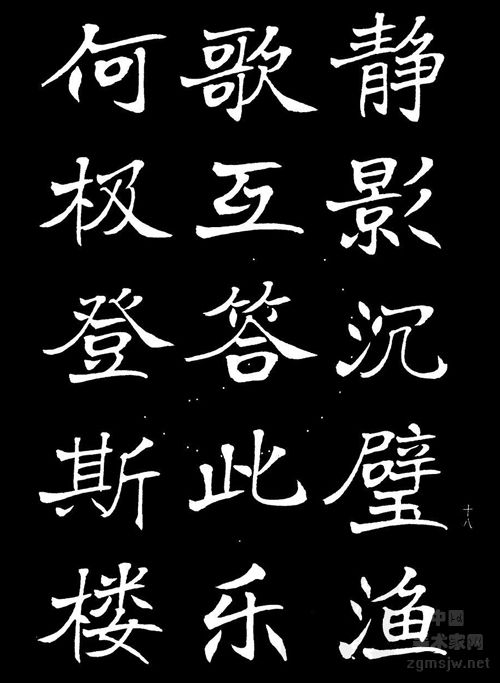 静影沉璧渔
歌互答此乐
何极登斯楼
十八
中国
美术家网
zgmsjw.net